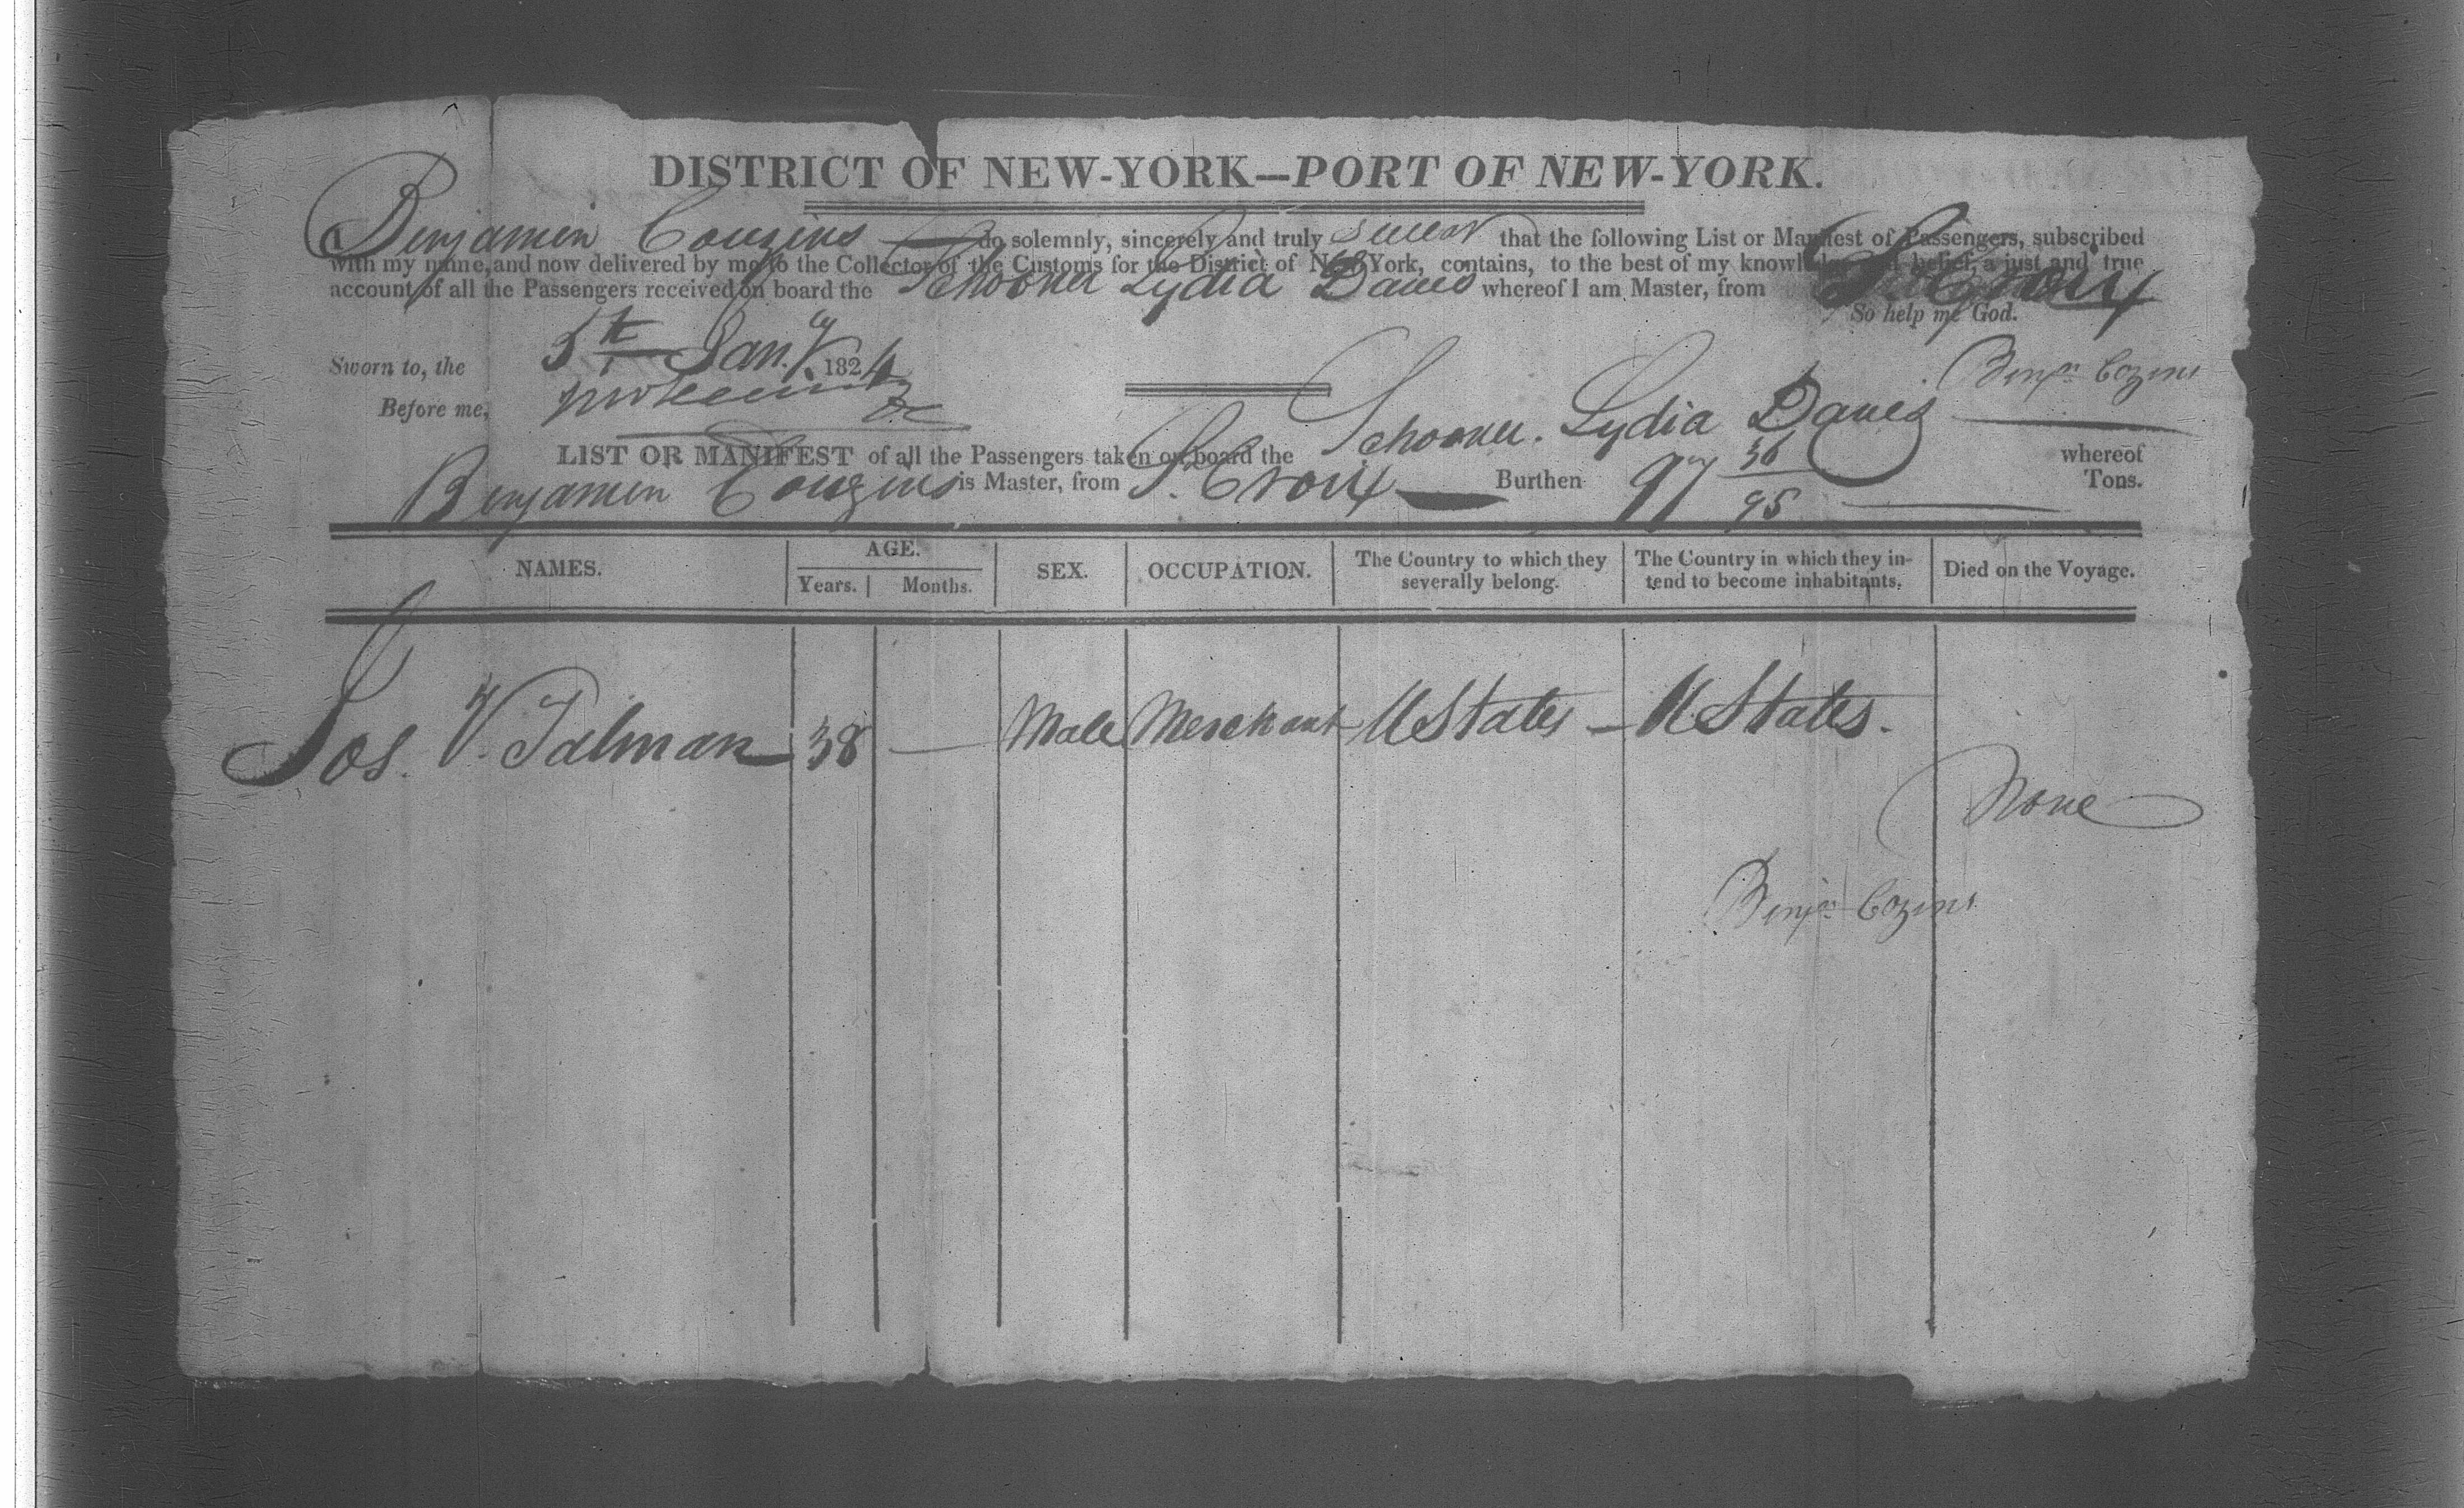 DISTRICT OF NEW-YORK—PORT OF NEW-YORK.
I Benjamin Couzins do solemnly, sincerely and truly Swear that the following List or Manifest of Passengers, subscribed
with my name, and now delivered by me to the Collector of the Customs for the District of New York, contains, to the best of my knowledge and belief, a just and true
account of all the Passengers received on board the Schooner Lydia Daves whereof I am Master, from St. Croix
So help me God.
Sworn to, the 5th Jany. 1824
Benjn Cozens
Before me,
LIST OR MANIFEST of all the Passengers taken on board the Schooner. Lydia Daves whereof
Benjamin Couzins is Master, from St. Croix Burthen 97 36/95 Tons.
NAMES. AGE. SEX. OCCUPATION. The Country to which they severally belong. The Country in which they in-tend to become inhabitants. Died on the Voyage.
Years. Months.
Jos. V. Talman 38 — Male Merchant U States — U States.
None
Benjn Cozens